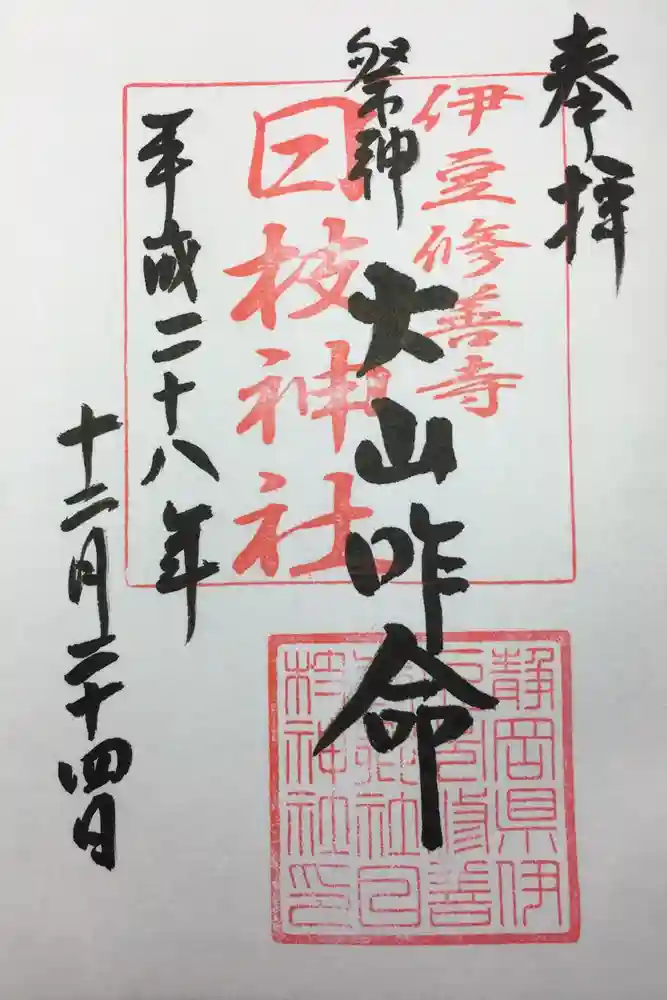 奉拝
伊豆修善寺
祭神
大山咋命
日枝神社
平成二十八年
十二月二十四日
静岡県伊
修善
社日
枝神社印